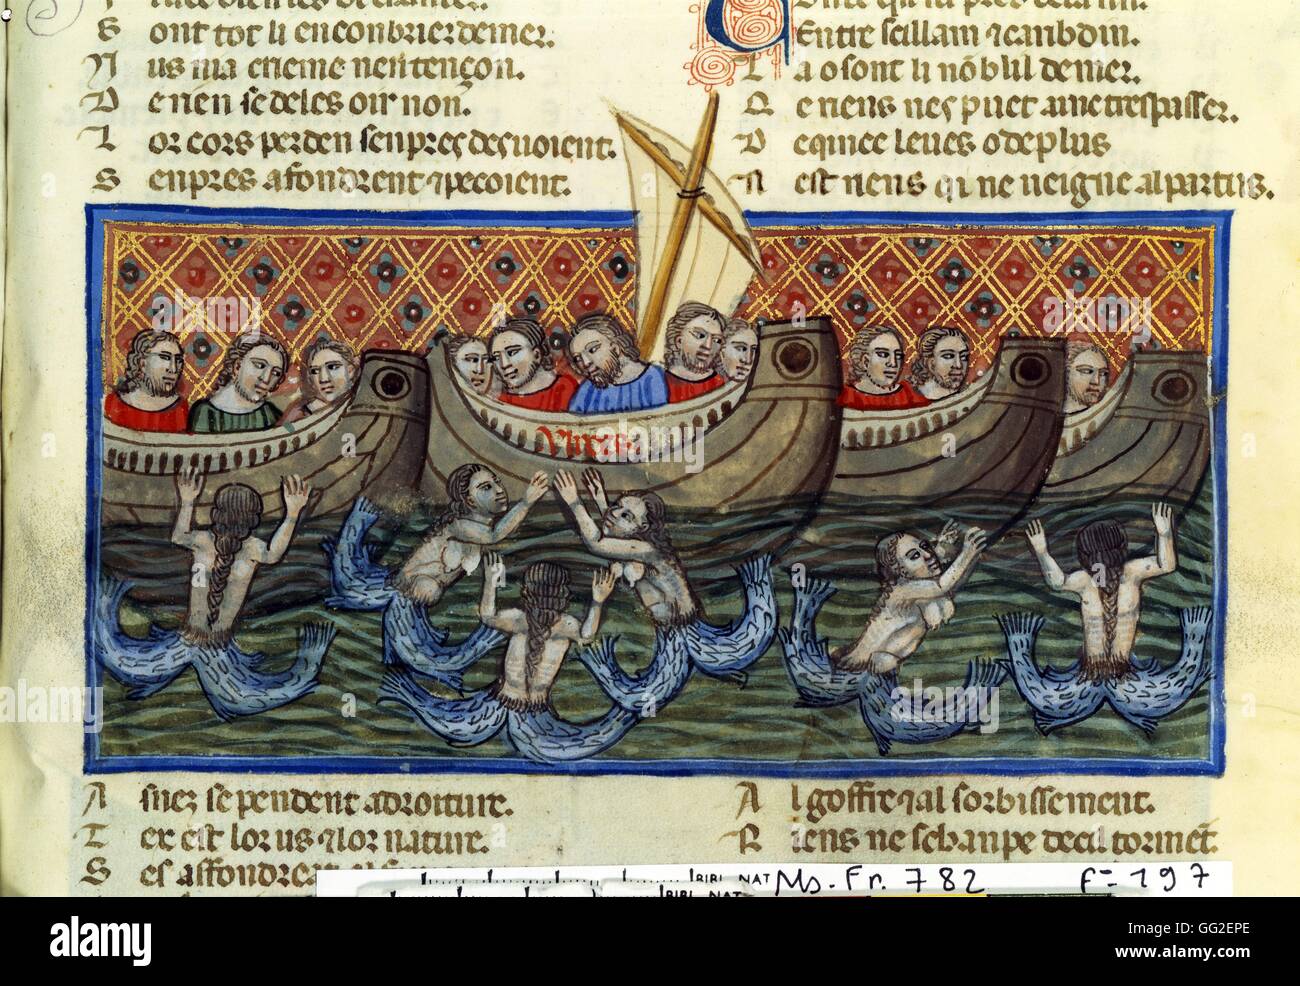 S ont tot li enconbrier de mer.
N us m a crieme ne n tençon.
D e n en se de les oir non.
L or cors perden senpres desvoient.
S enpres afondrent 7 pecoient.
Entre scillam 7 caribdin.
L a o sont li nobлil de mer.
Q e riens nes puet aine trespasser.
D e qinee leues o de plus
N est riens qi ne neigne al partus.
Ulixes
A s nez se pendent a droiture.
T ex est lor us 7 lor nature.
S es affondre
A l goffre 7 al sorbissement.
R iens ne sehanpe de cel torment.
BIBL NAT Ms. Fr. 782 f= 197
BIBL NAT
alamy
alamy stock photo
GG2EPE
www.alamy.com